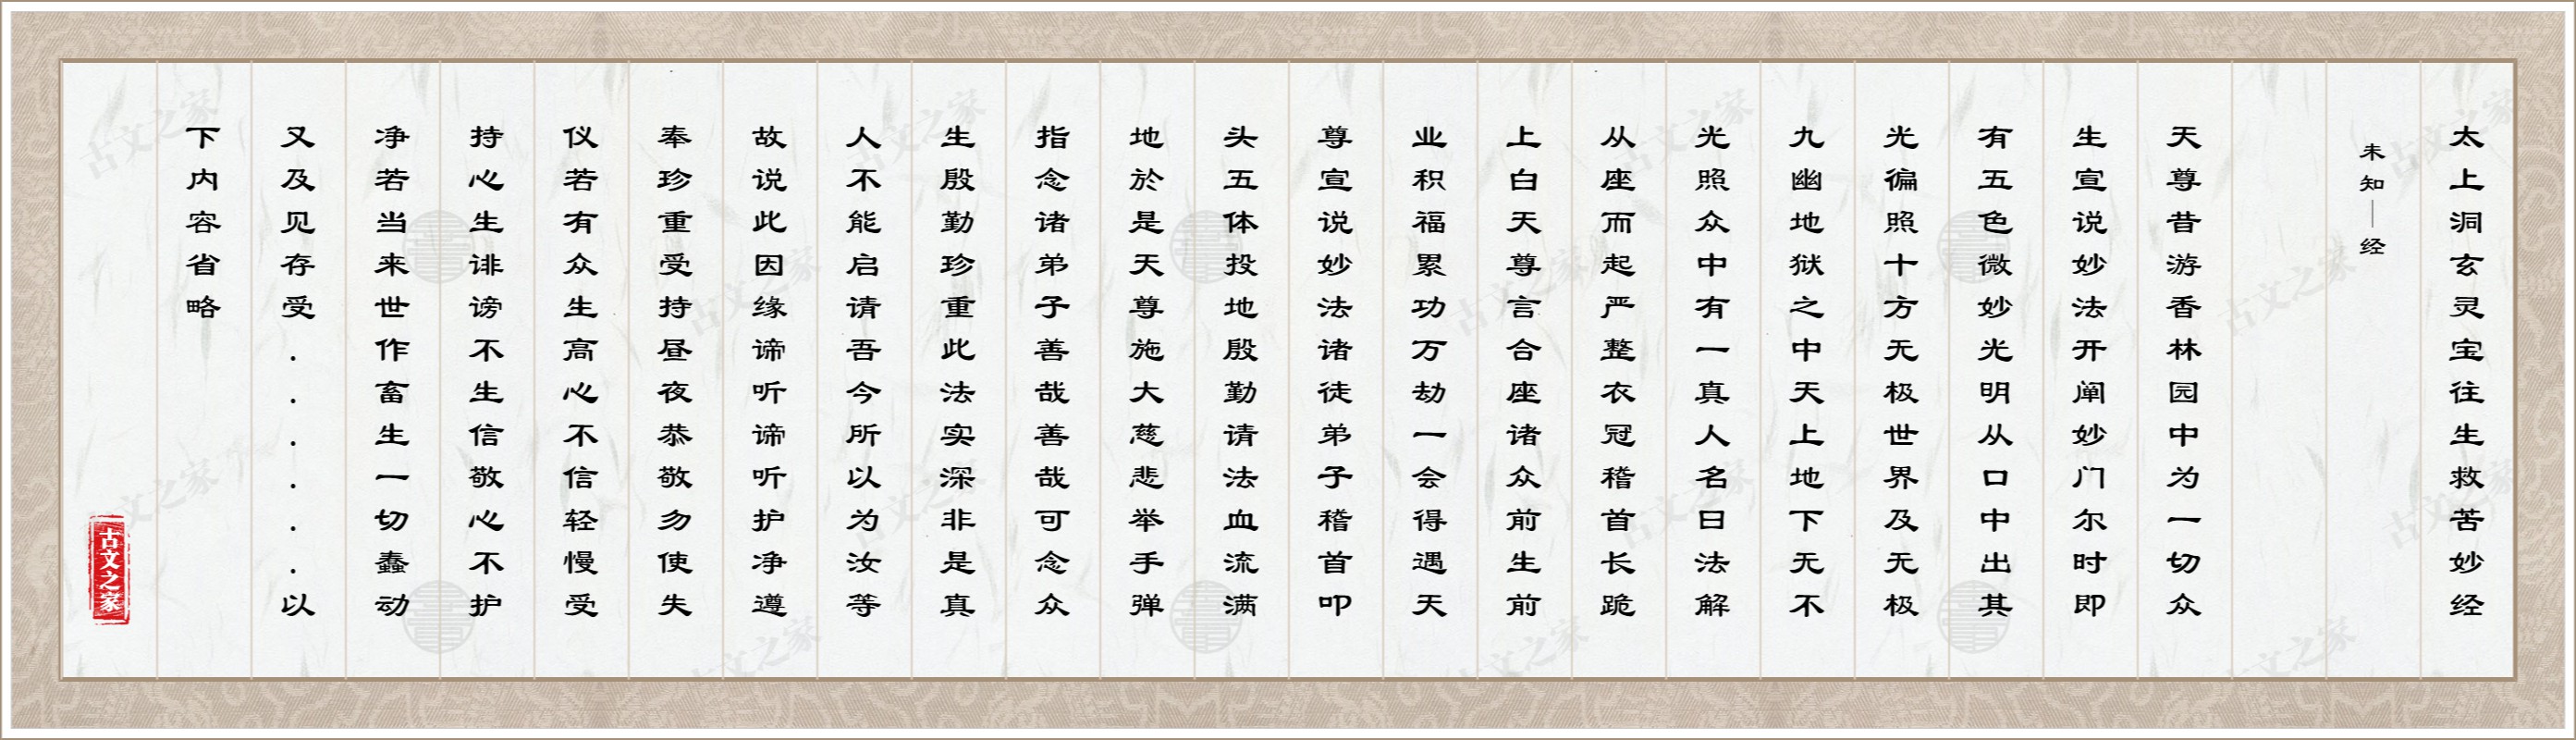 太上洞玄灵宝往生救苦妙经
未知｜经
天尊昔游香林园中为一切众
生宣说妙法开阐妙门尔时即
有五色微妙光明从口中出其
光徧照十方无极世界及无极
九幽地狱之中天上地下无不
光照众中有一真人名曰法解
从座而起严整衣冠稽首长跪
上白天尊言合座诸众前生前
业积福累功万劫一会得遇天
尊宣说妙法诸徒弟子稽首叩
头五体投地殷勤请法血流满
地於是天尊施大慈悲举手弹
指念诸弟子善哉善哉可念众
生殷勤珍重此法实深非是真
人不能启请吾今所以为汝等
故说此因缘谛听谛听护净遵
奉珍重受持昼夜恭敬勿使失
仪若有众生高心不信轻慢受
持心生诽谤不生信敬心不护
净若当来世作畜生一切蠢动
又及见存受......以
下内容省略
古文之家